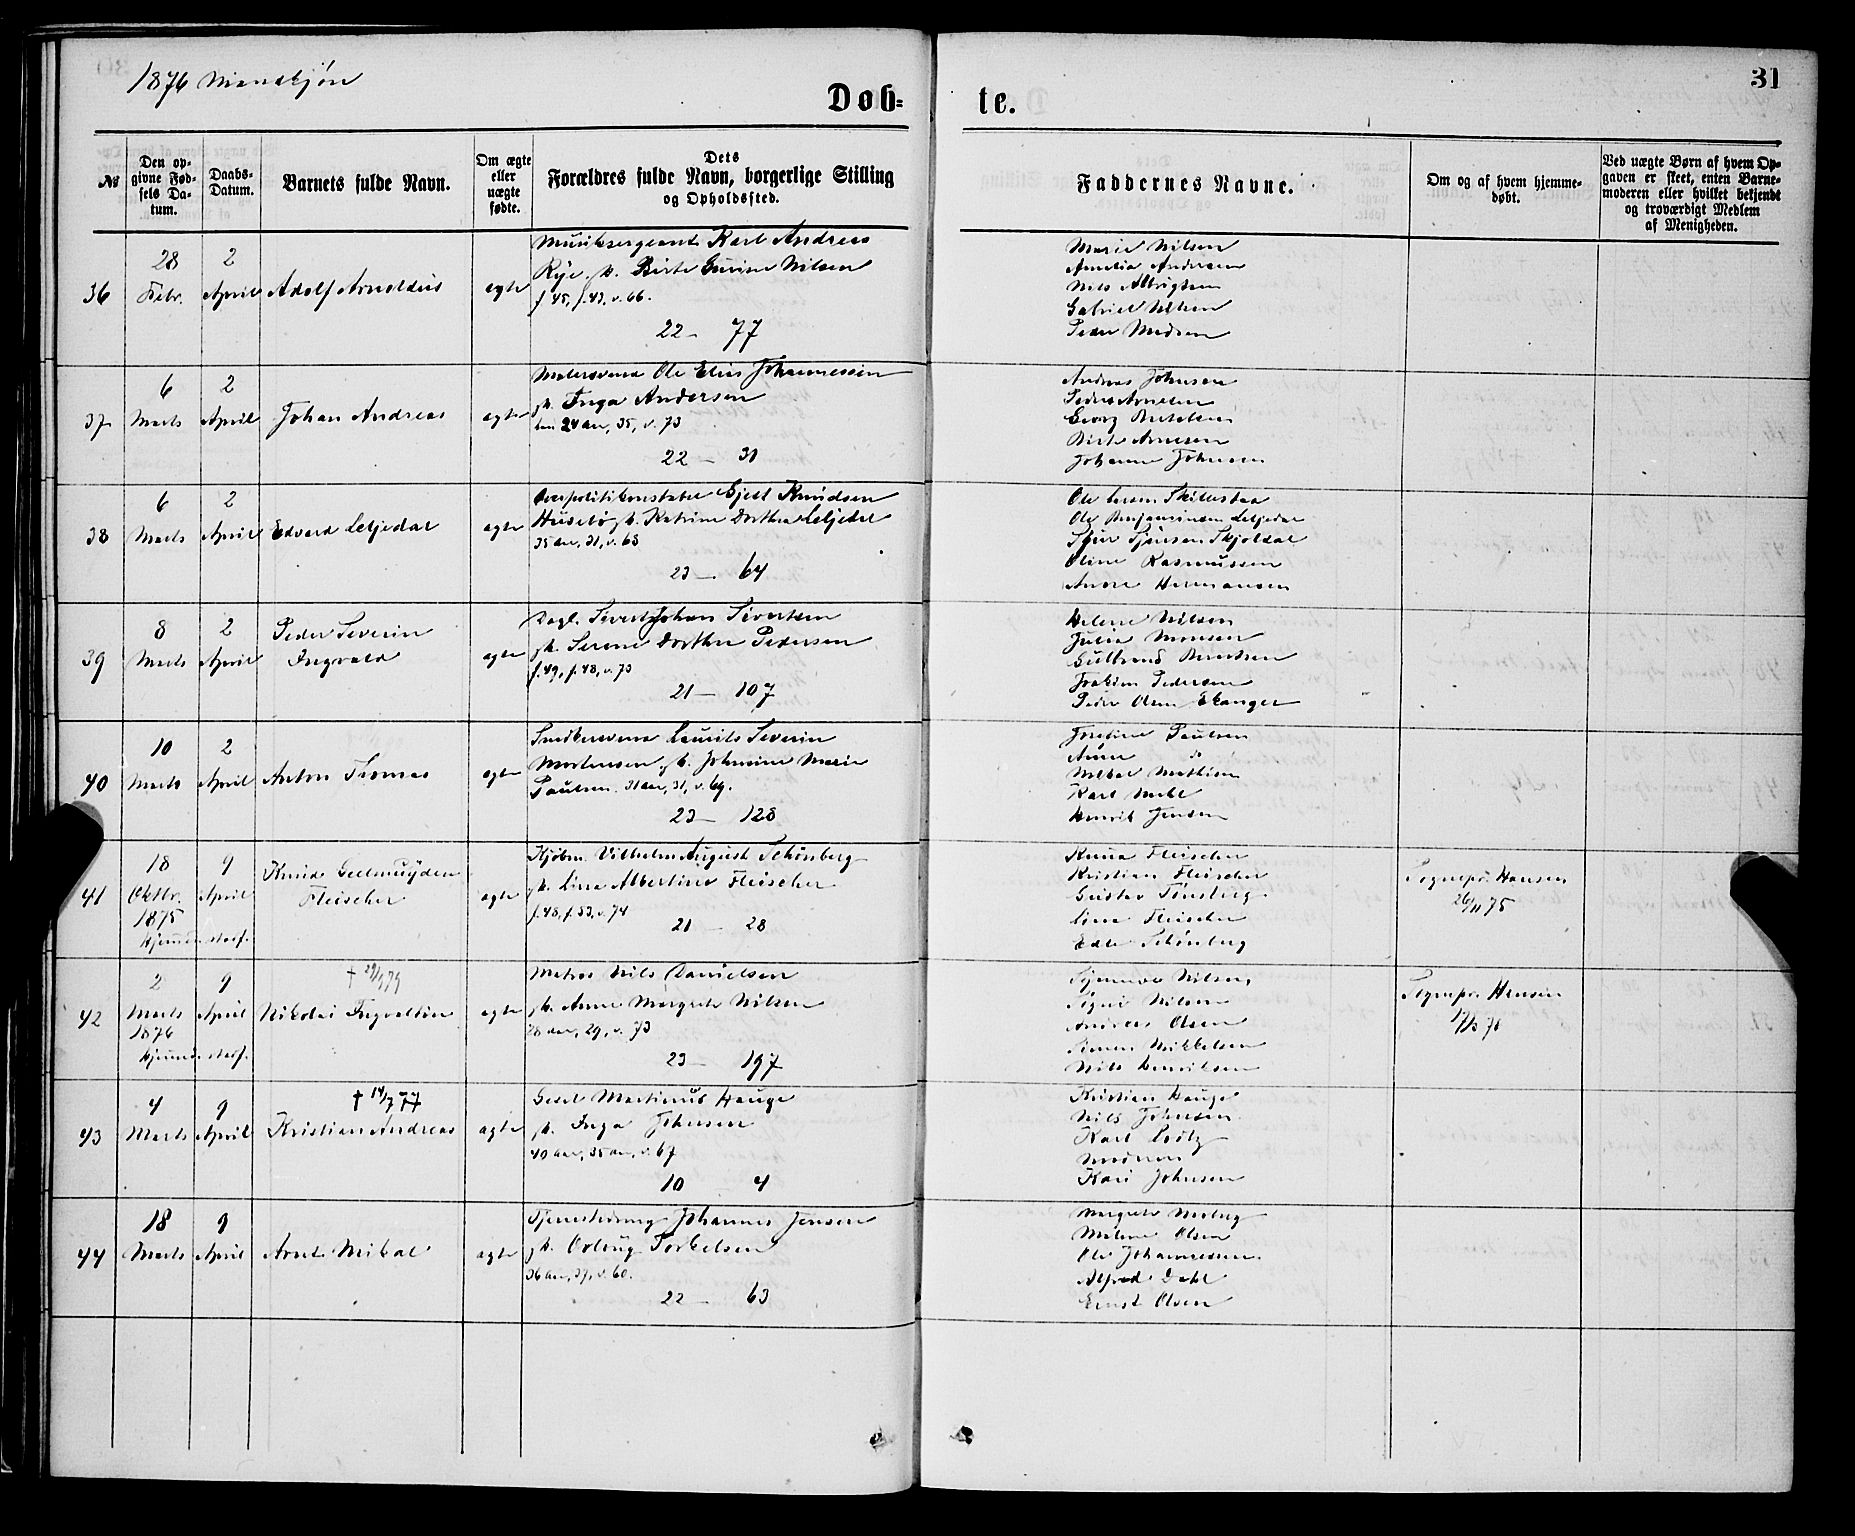 1876 Mandkjøn
Døb-
te.
31
№
Den op-
givne Fød-
sels Da-
tum.
Daabs-
Datum.
Barnets fulde Navn.
Om ægte
eller
uægte
fødte.
Dets
Forældres fulde Navn, borgerlige Stilling
og Opholdssted.
Faddernes Navne.
Om og af hvem hjemme-
døbt.
Ved uægte Børn af hvem Op-
gaven er skeet, enten Barne-
moderen eller hvilket bekjendt
og troværdigt Medlem
af Menigheden.
36
28
Febr.
2
April
Adolf Arnoldus
egte
Musiksergeant Karl Andreas
Rye, h. Berte Nilsen
f. 45, f. 43, v. 66.
22 - 77
Marie Nilsen
Amelia Andersen
Nils Albrigtsen
Gabriel Nilsen
Peder Madsen
37
6
Marts
2
April
Johan Andreas
egte
Malersvend Ole Elias Johannessen
h. Inga Andersen
24 aar, 35, v. 73
22 - 31
Andreas Johnsen
Peder Arnesen
Georg Bertelsen
Birte Arnesen
Johanne Johnsen
38
6
Marts
2
April
Edvard Leljedal
egte
Overpolitikonstabel Gjert Knudsen
Husebø, h. Katrine Dorthea Leljedal
35 aar, 31, v. 68
23 - 64
Ole Skillestad
Ole Benjaminsen Leljedal
Skjoldal
Oline Rasmussen
Andre Hermansen
39
8
Marts
2
April
Peder Severin
Ingvald
egte
Dagl. Sivert Johan Sivertsen
h. Serine Dorthea Pedersen
f. 49, f. 48, v. 73
21 - 107
Helene Nilsen
Julia Monsen
Gulbrand Berntsen
Joakim Pedersen
Peder Olsen Ekanger
40
10
Marts
2
April
Anton Tomas
egte
Snedkersvend Laurits Severin
Mortensen, h. Johanne Marie
Paulsen. 31 aar, 31, v. 69.
23 - 128
Josefine Paulsen
Anne do
Mikal Mathisen
Karl
Henrik Jensen
41
18
Oktbr.
1875
9
April
Knud Geelmuyden
Fleischer
egte
Kjøbm. Vilhelm August Schønberg
h. Lina Albertine Fleischer
f. 48, f. 53, v. 74
21 - 28
Kristian Fleischer
Gustav Tønsberg
Lina Fleischer
Edle Schønberg
Sognepr. Hansen
26/11 75
42
2
Marts
1876
9
April
Nikolai Ingvaldin
egte
Matros Nils Danielsen
h. Anne Margrete Nilsen
28 aar, 29, v. 73
23 - 197
Nilsen
Signe Nilsen
Andreas Olsen
Simon Mikkelsen
Nils Henriksen
Sognepr. Hansen
17/3 76
43
4
Marts
9
April
† 14/7 77
Kristian Andreas
egte
Martinus Hauge
h. Inga Johnsen
40 aar, 35 aar, v. 67
10 4
Kristian Hauge
Nils Johnsen
Karl
Moderen
Kari Johnsen
44
18
Marts
9
April
Arnt Mikal
egte
Tjenestedreng Johannes Jensen
h. Torkelsen
36 aar, 37, v. 60.
22 - 63
Margrete
Malene Olsen
Ole Johannessen
Alfred Dahl
Ernst Olsen